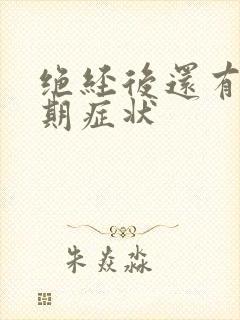 绝经後還有
期症状
朱焱淼